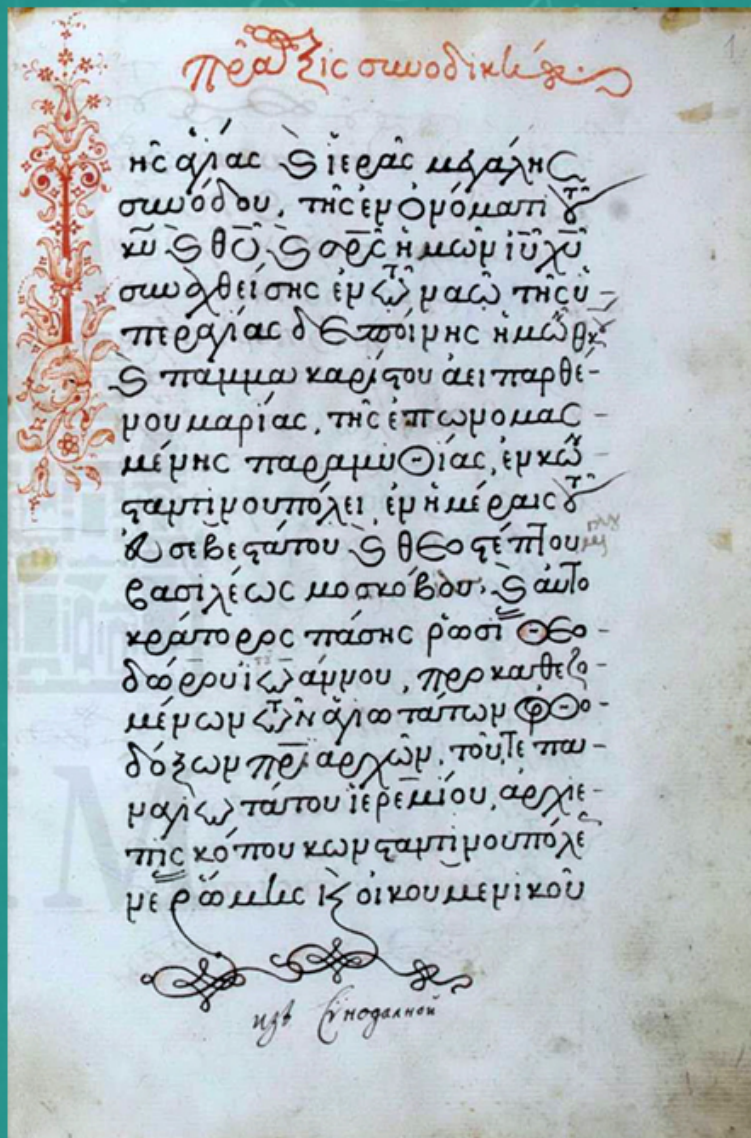 πρᾶξις συνοδική
1
ης ἁγίας καὶ ἱερᾶς μεγάλης
συνόδου, τῆς ἐν ὀνόματι τοῦ
κῡ καὶ θῡ καὶ σρ̅ς ἡμῶν ἰῡ χῡ
συναχθείσης ἐν τῷ ναῷ τῆς ὑ-
περαγίας δεσποίνης ἡμῶν θκ̅
καὶ παμμακαρίστου ἀειπαρθέ-
νου μαρίας, τῆς ἐπωνομασ-
μένης παραμυθίας, ἐν κων
σταντινουπόλει, ἐν ἡμέραις τοῦ
εὐσεβεστάτου καὶ θεοστέπτου
βασιλέως μοσκόβου, καὶ αὐτο
κράτορος πάσης ῥωσί θεο-
δώρου ἰωάννου, προκαθεζο
μένων τῶν ἁγιωτάτων ὀρθο-
δόξων πρι̅αρχῶν, τοῦ τε πα-
ναγιωτάτου ἱερεμίου, ἀρχιε-
πισκόπου κωνσταντινουπόλε
νέ ῥώμης καὶ οἰκουμενικοῦ
изъ Синодалной